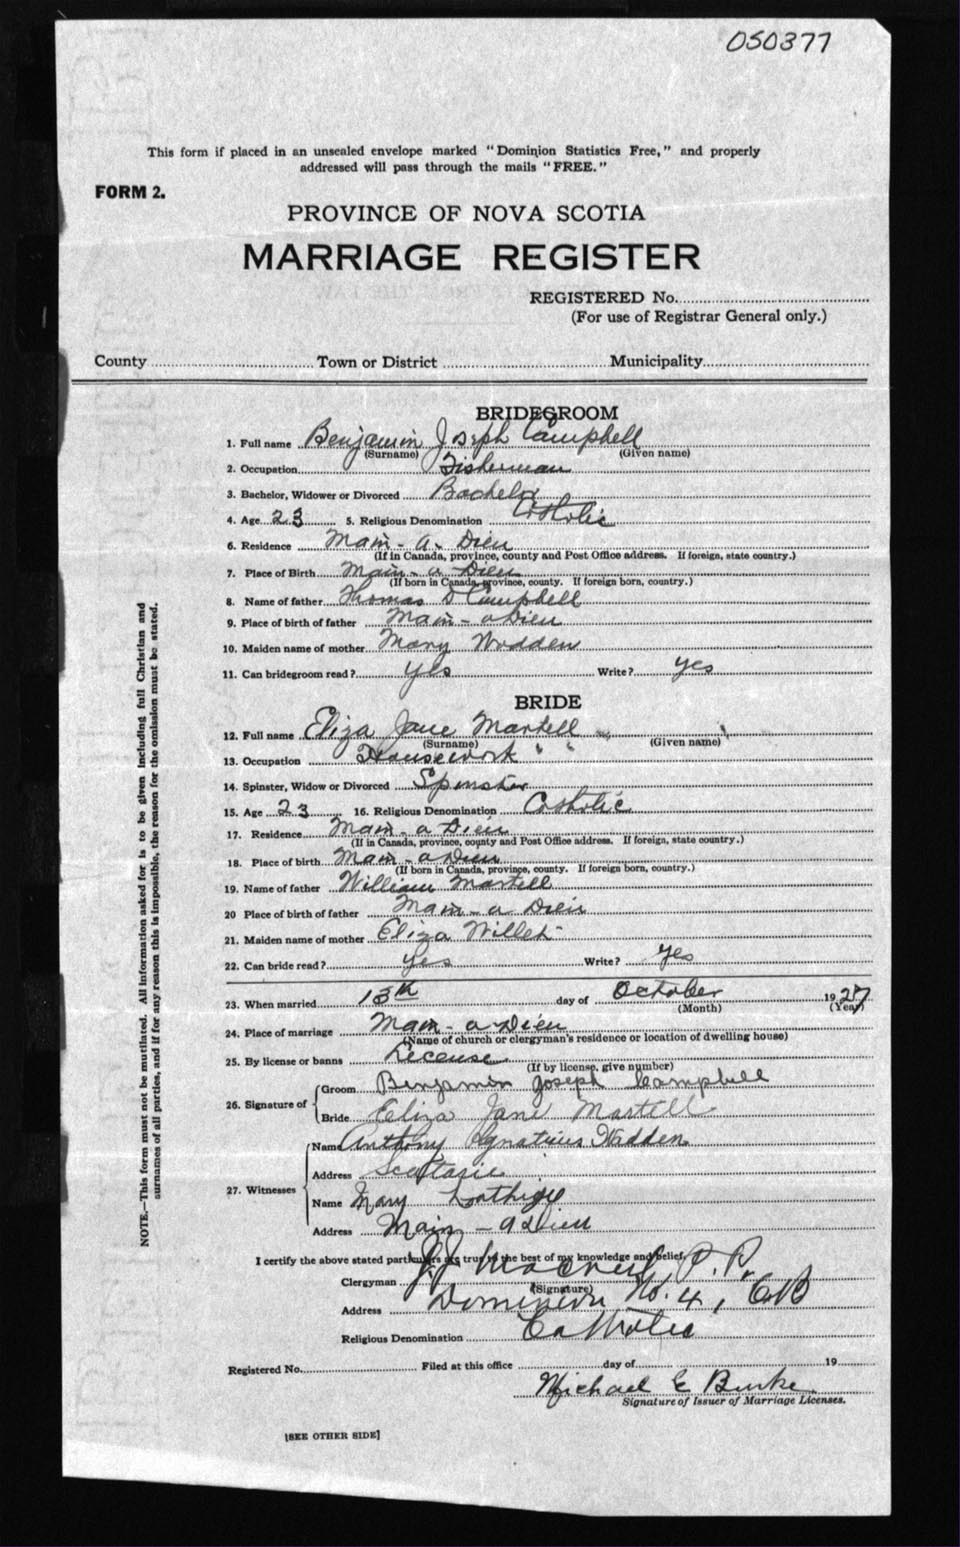 050377
This form if placed in an unsealed envelope marked "Dominion Statistics Free," and properly
addressed will pass through the mails "FREE."
FORM 2.
PROVINCE OF NOVA SCOTIA
MARRIAGE REGISTER
REGISTERED No.
(For use of Registrar General only.)
County Town or District Municipality
BRIDEGROOM
1. Full name Benjamin Joseph Campbell
(Surname) (Given name)
2. Occupation Fisherman
3. Bachelor, Widower or Divorced Bachelor
4. Age 23 5. Religious Denomination Catholic
6. Residence Main-a-Dieu
(If in Canada, province, county and Post Office address. If foreign, state country.)
7. Place of Birth Main-a Dieu
(If born in Canada, province, county. If foreign born, country.)
8. Name of father Thomas D Campbell
9. Place of birth of father Main-a Dieu
10. Maiden name of mother Mary Wadden
11. Can bridegroom read? Yes Write? Yes
BRIDE
12. Full name Eliza Jane Martell
(Surname) (Given name)
13. Occupation Housework
14. Spinster, Widow or Divorced Spinster
15. Age 23 16. Religious Denomination Catholic
17. Residence Main-a Dieu
(If in Canada, province, county and Post Office address. If foreign, state country.)
18. Place of birth Main-a Dieu
(If born in Canada, province, county. If foreign born, country.)
19. Name of father William Martell
20 Place of birth of father Main-a Dieu
21. Maiden name of mother Eliza Willet
22. Can bride read? Yes Write? Yes
23. When married 13th day of October 1927
(Month) (Year)
24. Place of marriage Main-a Dieu
(Name of church or clergyman's residence or location of dwelling house)
25. By license or banns License
(If by license, give number)
26. Signature of Groom Benjamin Joseph Campbell
Bride Eliza Jane Martell
27. Witnesses Name Anthony Ignatius Wadden
Address Scatarie
Name Mary
Address Main-a Dieu
I certify the above stated particulars are true to the best of my knowledge and belief,
Clergyman J.J. MacNeil, P.P.
(Signature)
Address Dominion No. 4, CB
Religious Denomination Catholic
Registered No. Filed at this office day of 19
Michael E Burke
Signature of Issuer of Marriage Licenses.
[SEE OTHER SIDE]
NOTE.—This form must not be mutilated. All information asked for is to be given including full Christian and
surnames of all parties, and if for any reason this is impossible, the reason for the omission must be stated.